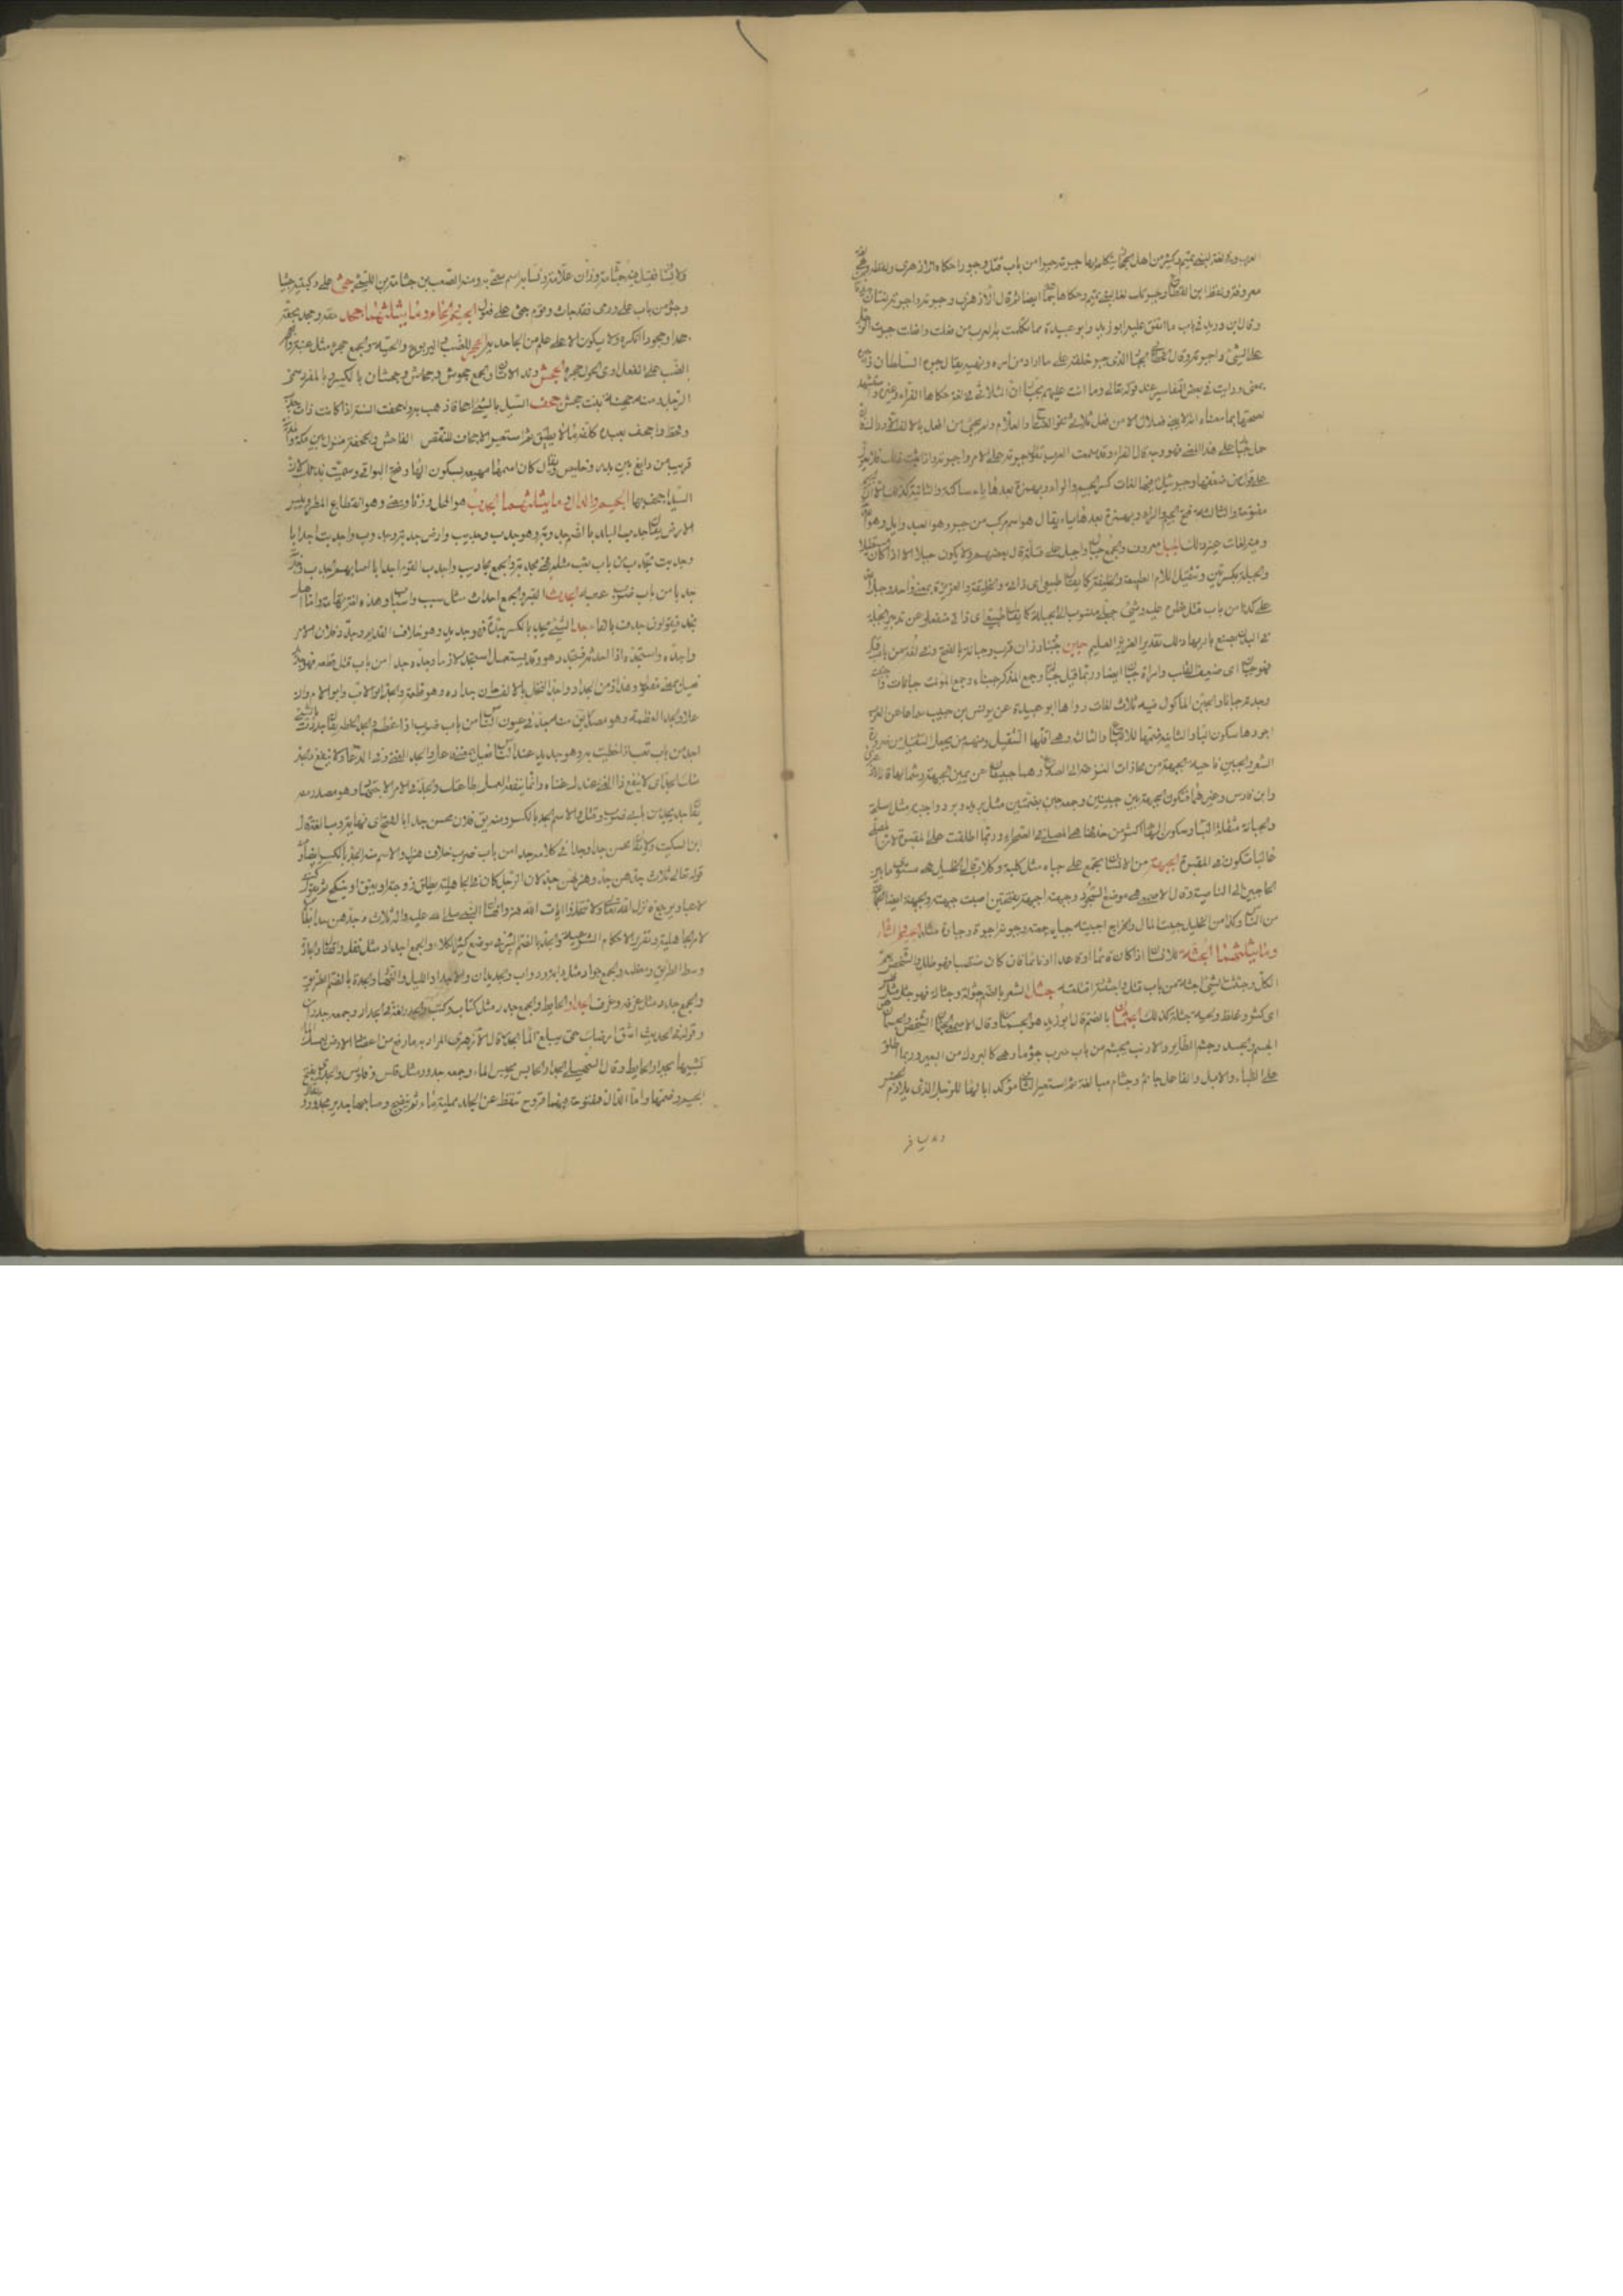 العرب وكافة لغة لبنى تميم وكثير من اهل الحجاز يتكلم بها جبرته جبرا من باب قتل وجبورا حكاه الازهرى ولفظه وهى لغة
معروفة ولفظ ابن القطاع وجبرتك لغة بنى تميم وحكاها جماعة ايضا ثم قال الازهرى وجبرته واجبرته لغتان جيدتان
وقال ابن دريد فى باب ما اتفق عليه ابو زيد وابو عبيدة مما تكلمت به العرب من فعلت وافعلت جبرت الرجل
على الشئ واجبرته وقال الخطابى الجبار الذى جبر خلقه على ما اراد من امره ونهيه يقال جبره السلطان واجبره
بمعنى ورايت فى بعض التفاسير عند قوله تعالى وما انت عليهم بجبار ان الثلاثى لغة حكاها الفراء وغيره واستشهد
لصحتها بما معناه انه لا يبنى فعال الا من فعل ثلاثى نحو الفتاح والعلام ولم يجئ من افعل بالالف الا دراك فان
حمل جبار على هذا المعنى فهو وجه قال الفراء وقد سمعت العرب تقول جبرته على الامر واجبرته واذا ثبت ذلك فلا يعول
على قول من ضعفها وجبريل فيها لغات كسر الجيم والراء وبعدها ياء ساكنة والثانية كذلك الا ان الجيم
مفتوحة والثالثة فتح الجيم والراء وبهمزة بعدها ياء يقال هو اسم مركب من جبر وهو العبد وايل وهو الله
وفيه لغات غير ذلك الجبل معروف والجمع جبال واجبل على قلة قال بعضهم ولا يكون جبلا الا اذا كان مستطيلا
والجبلة بكسرتين وتثقيل اللام الطبيعة والخليقة والغريزة بمعنى واحد وجبله الله
على كذا من باب قتل فطره عليه وشئ جبلى منسوب الى الجبلة كما يقال طبيعى اى ذاتى منفعل عن تدبير الجبلة
فى البدن بصنع بارئها ذلك تقدير العزيز العليم جبن جبنا وزان قرب وجبانة بالفتح وفى لغة من باب قتل
فهو جبان اى ضعيف القلب وامراة جبان ايضا وربما قيل جبانة وجمع المذكر جبناء وجمع المؤنث جبانات واجبنته
وجدته جبانا والجبن الماكول فيه ثلاث لغات رواها ابو عبيدة عن يونس بن حبيب سماعا عن العرب
اجودها سكون الباء والثانية ضمها للاتباع والثالثة وهى اقلها التثقيل ومنهم من يجعل التثقيل من ضرورة
الشعر والجبين ناحية الجبهة من محاذاة النزعة الى الصدغ وهما جبينان عن يمين الجبهة وشمالها قاله الازهرى
وابن فارس وغيرهما فتكون الجبهة بين جبينين وجمعه جبن بضمتين مثل بريد وبرد واجبنة مثل اسلحة
والجبانة مثقل الباء وثبوت الهاء اكثر من حذفها هى المصلى فى الصحراء وربما اطلقت على المقبرة لان المصلى
غالبا تكون فى المقبرة الجبهة من الانسان تجمع على جباه مثل كلبة وكلاب قال الخليل هى مستوى ما بين
الحاجبين الى الناصية وقال الاصمعى هى موضع السجود وجبهته اجبهه بفتحتين اصبت جبهته والجبهة ايضا الجماعة
من الناس وكذا من الخيل جبيت المال والخراج اجبيه جباية جمعته وجبوته اجبوه جباوة مثله الجيم والثاء
وما يثلثهما الجثة للانسان اذا كان قاعدا او نائما فان كان منتصبا فهو طلل والشخص يعم
الكل وجثثت الشئ اجثه من باب قتل واجتثثته اقتلعته جثل الشعر بالضم جثولة وجثالة فهو جثل مثل فلس
اى كثر وغلظ ولحية جثلة كذلك الجثمان بالضم قال ابو زيد هو الجسمان وقال الاصمعى الجثمان الشخص والجسمان
الجسم والجسد وجثم الطاير والارنب يجثم من باب ضرب جثوما وهو كالبروك من البعير وربما اطلق
على الظباء والابل والفاعل جاثم وجثام مبالغة ثم استعير الثانى مؤكدا بالهاء للرجل الذى يلازم الحضر
ولا يسافر
ولا يسافر فقيل فيه جثامة وزان علامة ونسابة ثم سمى به ومنه الصعب بن جثامة الليثى جثى على ركبتيه جثيا
وجثوا من باب علا ورمى فهو جاث وقوم جثى على فعول الجيم والحاء وما يثلثهما جحده حقه وبحقه
جحدا وجحودا انكره ولا يكون الا على علم من الجاحد به الجحر للضب واليربوع والحية والجمع جحرة مثل عنبة وانجحر
الضب على انفعل اوى الى جحره الجحش ولد الاتان والجمع جحوش وجحاش وجحشان بالكسر وبالمفرد سمى
الرجل ومنه حمنة بنت جحش جحف السيل بالشئ اجحافا ذهب به واجحفت السنة اذا كانت ذات جدب
وقحط واجحف بعبده كلفه ما لا يطيق ثم استعير الاجحاف للنقص الفاحش والجحفة منزل بين مكة والمدينة
قريب من رابغ بين بدر وخليص ويقال كان اسمها مهيعة بسكون الهاء وفتح البواقى وسميت بذلك لان
السيل اجحف بها الجيم والدال وما يثلثهما الجدب هو المحل وزنا ومعنى وهو انقطاع المطر ويبس
الارض يقال جدب البلد بالضم جدوبة وهو جدب وجديب وارض جدبة وجدوب واجدبت اجدابا
وجدبت تجدب من باب تعب مثله فهى مجدبة والجمع مجاديب واجدب القوم اجدابا اصابهم الجدب وجدبته
جدبا من باب ضرب عبته الجدث القبر والجمع اجداث مثل سبب واسباب وهذه لغة تهامة واما اهل
نجد فيقولون جدف بالفاء جد الشئ يجد بالكسر جدة فهو جديد وهو خلاف القديم وجد فلان الامر
واجده واستجده اذا احدثه فتجدد هو وقد يستعمل استجد لازما وجده جدا من باب قتل قطعه فهو جديد
فعيل بمعنى مفعول وهذا زمن الجداد واجد النخل بالالف حان جداده وهو قطعه والجد ابو الاب وابو الام وان
علا والجد العظمة وهو مصدر يقال منه جد فى عيون الناس من باب ضرب اذا عظم والجد الحظ يقال جددت بالشئ
اجد من باب تعب اذا حظيت به وهو جديد عند الناس فعيل بمعنى فاعل والجد الغنى وفى الدعاء ولا ينفع ذا الجد
منك الجد اى لا ينفع ذا الغنى عندك غناه وانما ينفعه العمل بطاعتك والجد فى الامر الاجتهاد وهو مصدر منه
يقال جد يجد من باب ضرب وقتل والاسم الجد بالكسر ومنه يقال فلان محسن جدا بالفتح اى نهاية ومبالغة قال
ابن السكيت ولا يقال محسن جدا وجد فى كلامه جدا من باب ضرب خلاف هزل والاسم منه الجد بالكسر ايضا
قوله تعالى ثلاث جدهن جد وهزلهن جد لان الرجل كان فى الجاهلية يطلق زوجته او يعتق او ينكح ثم يقول كنت
لاعبا ويرجع فانزل الله تعالى ولا تتخذوا ايات الله هزوا فقال النبى صلى الله عليه واله ثلاث جدهن جد ابطالا
لامر الجاهلية وتقريرا للاحكام الشرعية والجد بالضم البئر فى موضع كثير الكلاء والجمع اجداد مثل قفل واقفال والجادة
وسط الطريق ومعظمه والجمع جواد مثل دابة ودواب والجديدان والاجدان الليل والنهار والجدة بالضم الطريق
والجمع جدد مثل غرفة وغرف الجدار الحائط والجمع جدر مثل كتاب وكتب والجدر لغة فى الجدار وجمعه جدران
وقوله فى الحديث اسق ارضك حتى يبلغ الماء الجدر قال الازهرى المراد به ما رفع من اعضاد الارض ليمسك الماء
تشبيها بجدار الحائط وقال السهيلى الجدر الحاجز يحبس الماء وجمعه جدور مثل فلس وفلوس والجدرى بفتح
الجيم وضمها واما الدال فمفتوحة فيهما قروح تنفط عن الجلد ممتلئة ماء ثم تنفتح وصاحبها جدير مجدور